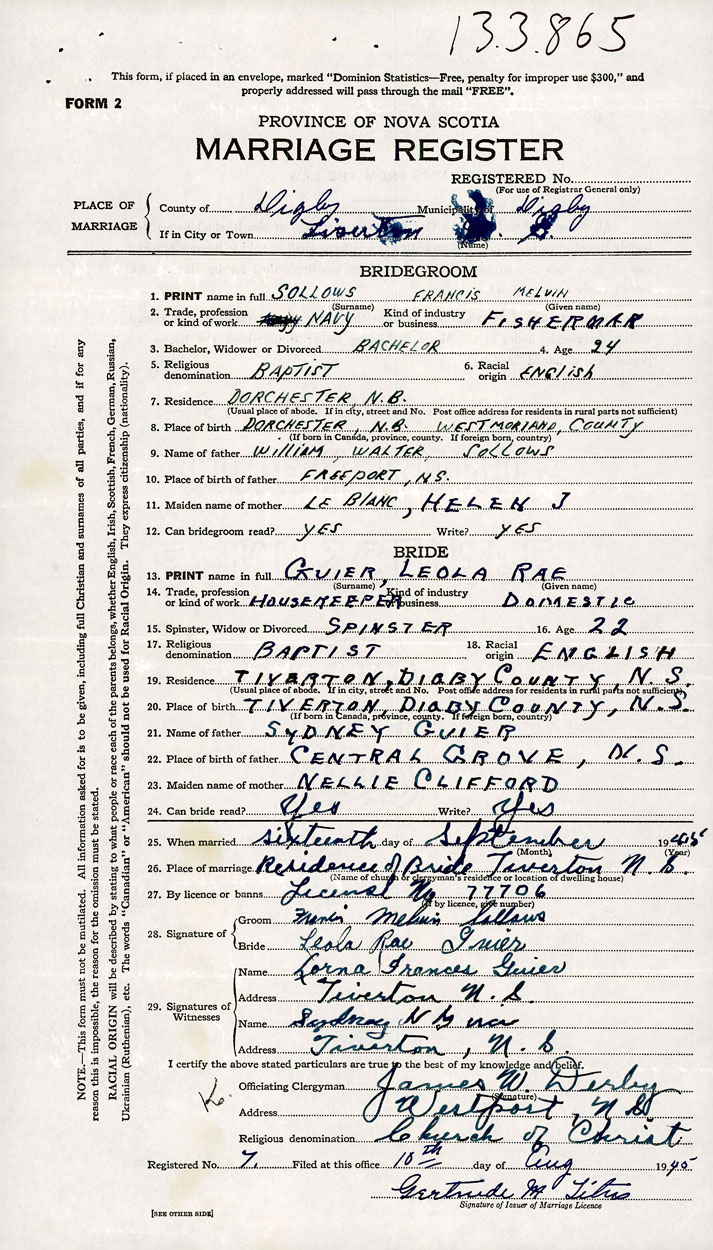 13.3.865
This form, if placed in an envelope, marked "Dominion Statistics—Free, penalty for improper use $300," and
properly addressed will pass through the mail "FREE".
FORM 2
PROVINCE OF NOVA SCOTIA
MARRIAGE REGISTER
REGISTERED No.
(For use of Registrar General only)
PLACE OF MARRIAGE
County of Digby Municipality of Digby
If in City or Town Tiverton
(Name)
BRIDEGROOM
1. PRINT name in full SOLLOWS FRANCIS MELVIN
(Surname) (Given name)
2. Trade, profession or kind of work NAVY Kind of industry or business FISHERMAR
3. Bachelor, Widower or Divorced BACHELOR 4. Age 24
5. Religious denomination BAPTIST 6. Racial origin ENGLISH
7. Residence DORCHESTER, N.B.
(Usual place of abode. If in city, street and No. Post office address for residents in rural parts not sufficient)
8. Place of birth DORCHESTER, N.B. WESTMORLAND, COUNTY
(If born in Canada, province, county. If foreign born, country)
9. Name of father WILLIAM WALTER SOLLOWS
10. Place of birth of father FREEPORT, N.S.
11. Maiden name of mother LE BLANC, HELEN J
12. Can bridegroom read? YES Write? YES
BRIDE
13. PRINT name in full GUIER, LEOLA RAE
(Surname) (Given name)
14. Trade, profession or kind of work HOUSEKEEPER Kind of industry or business DOMESTIC
15. Spinster, Widow or Divorced SPINSTER 16. Age 22
17. Religious denomination BAPTIST 18. Racial origin ENGLISH
19. Residence TIVERTON, DIGBY COUNTY, N.S.
(Usual place of abode. If in city, street and No. Post office address for residents in rural parts not sufficient)
20. Place of birth TIVERTON, DIGBY COUNTY, N.S.
(If born in Canada, province, county. If foreign born, country)
21. Name of father SYDNEY GUIER
22. Place of birth of father CENTRAL GROVE, N.S.
23. Maiden name of mother NELLIE CLIFFORD
24. Can bride read? Yes Write? Yes
25. When married sixteenth day of September 1945
(Month) (Year)
26. Place of marriage Residence of Bride Tiverton N.S.
(Name of church or clergyman's residence or location of dwelling house)
27. By licence or banns License No 77706
(If by licence, give number)
28. Signature of
Groom Melvin Sollows
Bride Leola Rae Guier
29. Signatures of Witnesses
Name Lorna Frances Guier
Address Tiverton N.S.
Name Sydney
Address Tiverton, N.S
I certify the above stated particulars are true to the best of my knowledge and belief.
Officiating Clergyman James W. Derby
(Signature)
Address Westport, N.S
Religious denomination Church of Christ
Registered No. 7. Filed at this office 10th day of Aug 1945
Gertrude M Titus
Signature of Issuer of Marriage Licence
[SEE OTHER SIDE]
NOTE.—This form must not be mutilated. All information asked for is to be given, including full Christian and surnames of all parties, and if for any
reason this is impossible, the reason for the omission must be stated.
RACIAL ORIGIN will be described by stating to what people or race each of the parents belongs, whether English, Irish, Scottish, French, German, Russian,
Ukrainian (Ruthenian), etc. The words "Canadian" or "American" should not be used for Racial Origin. They express citizenship (nationality).